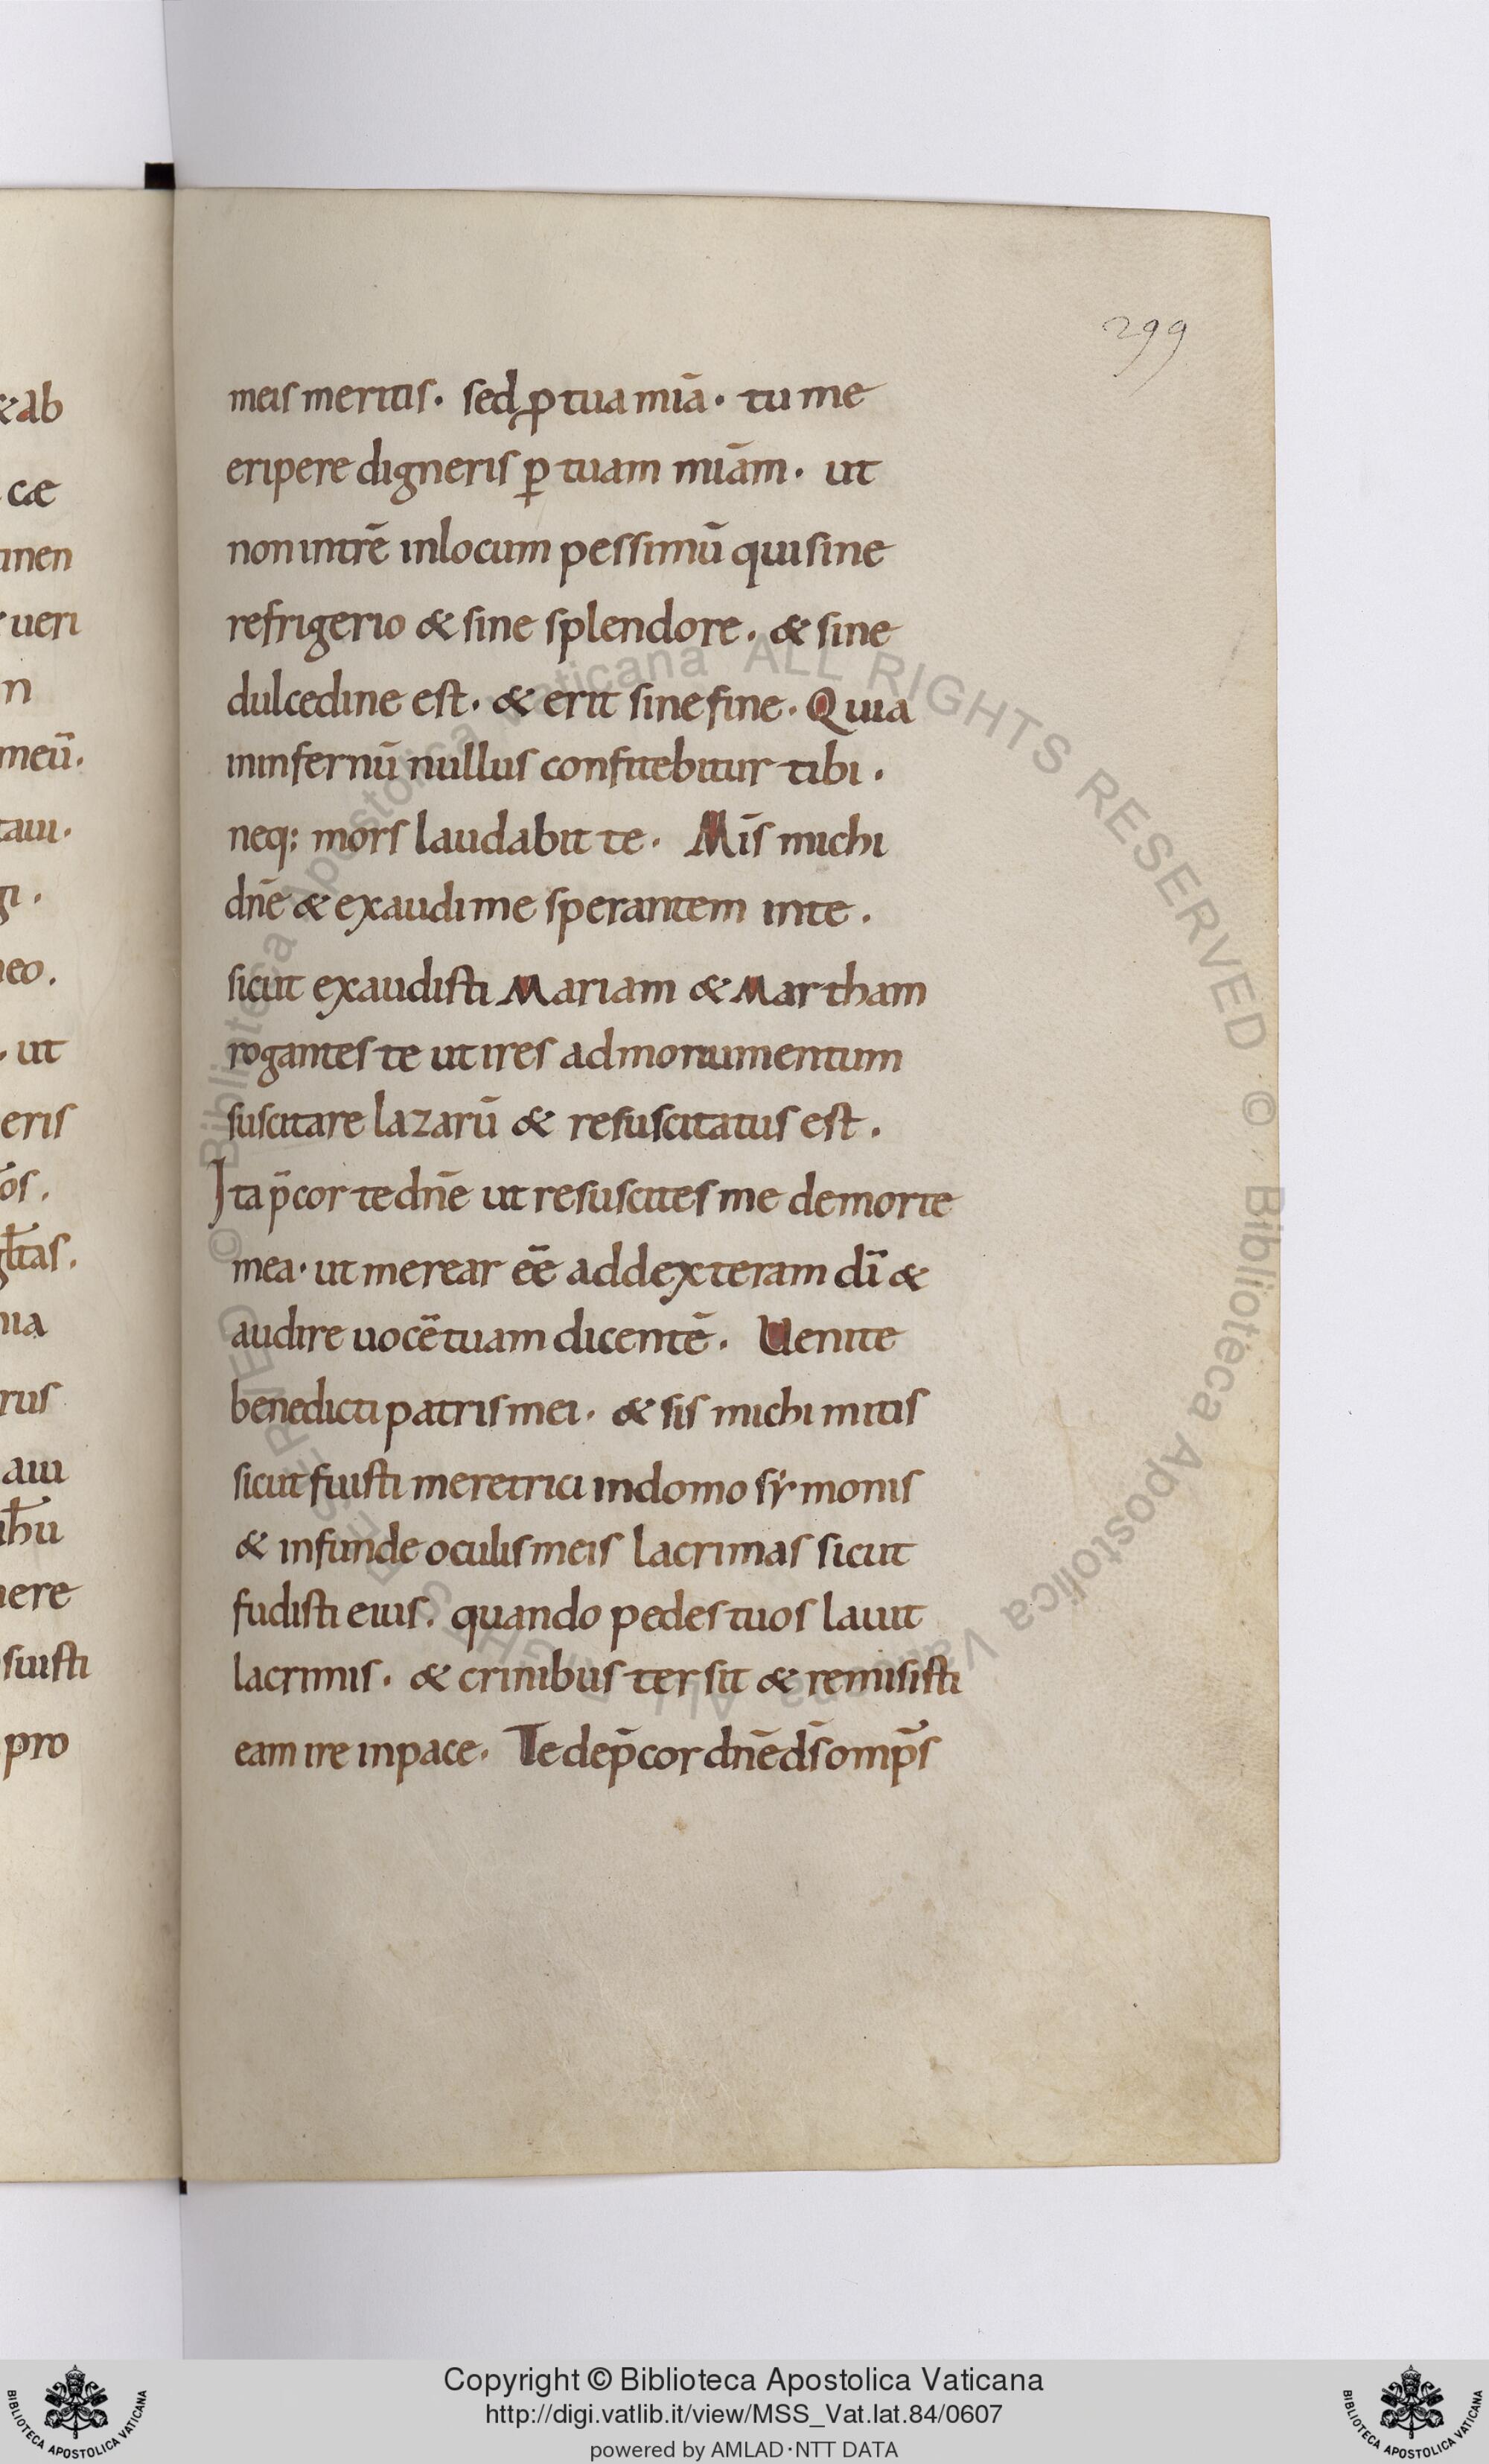 &ab
cæ
inen
ueri
n
meū.
taui.
gi.
neo.
. ut
eris
ia
rus
aui
nere
suisti
pro
299
meis meritis. sed ꝓ tua mīa. tu me
eripere digneris ꝑ tuam mīam. ut
non intrē inlocum pessimū qui sine
refrigerio & sine splendore. & sine
dulcedine est. & erit sine fine. Quia
ininfernū nullus confitebitur tibi.
neq; mors laudabit te. Mis̄ michi
dn̄e & exaudi me sperantem inte.
sicut exaudisti Mariam & Martham
rogantes te ut ires admonumentum
suscitare lazarū & resuscitatus est.
Ita p̄cor te dn̄e ut resuscites me demorte
mea. ut merear ēē addexteram dī &
audire uocē tuam dicentē. Uenite
benedicti patris mei. & sis michi mitis
sicut fuisti meretrici indomo sẏmonis
& infunde oculis meis lacrimas sicut
fudisti eius. quando pedes tuos lauit
lacrimis. & crinibus tersit & remisisti
eam ire inpace. Te dep̄cor dn̄e ds̄ omp̄s
© Biblioteca Apostolica Vaticana ALL RIGHTS RESERVED © Biblioteca Apostolica Vaticana ALL RIGHTS RESERVED
Copyright © Biblioteca Apostolica Vaticana
http://digi.vatlib.it/view/MSS_Vat.lat.84/0607
powered by AMLAD·NTT DATA
BIBLIOTECA APOSTOLICA VATICANA
BIBLIOTECA APOSTOLICA VATICANA